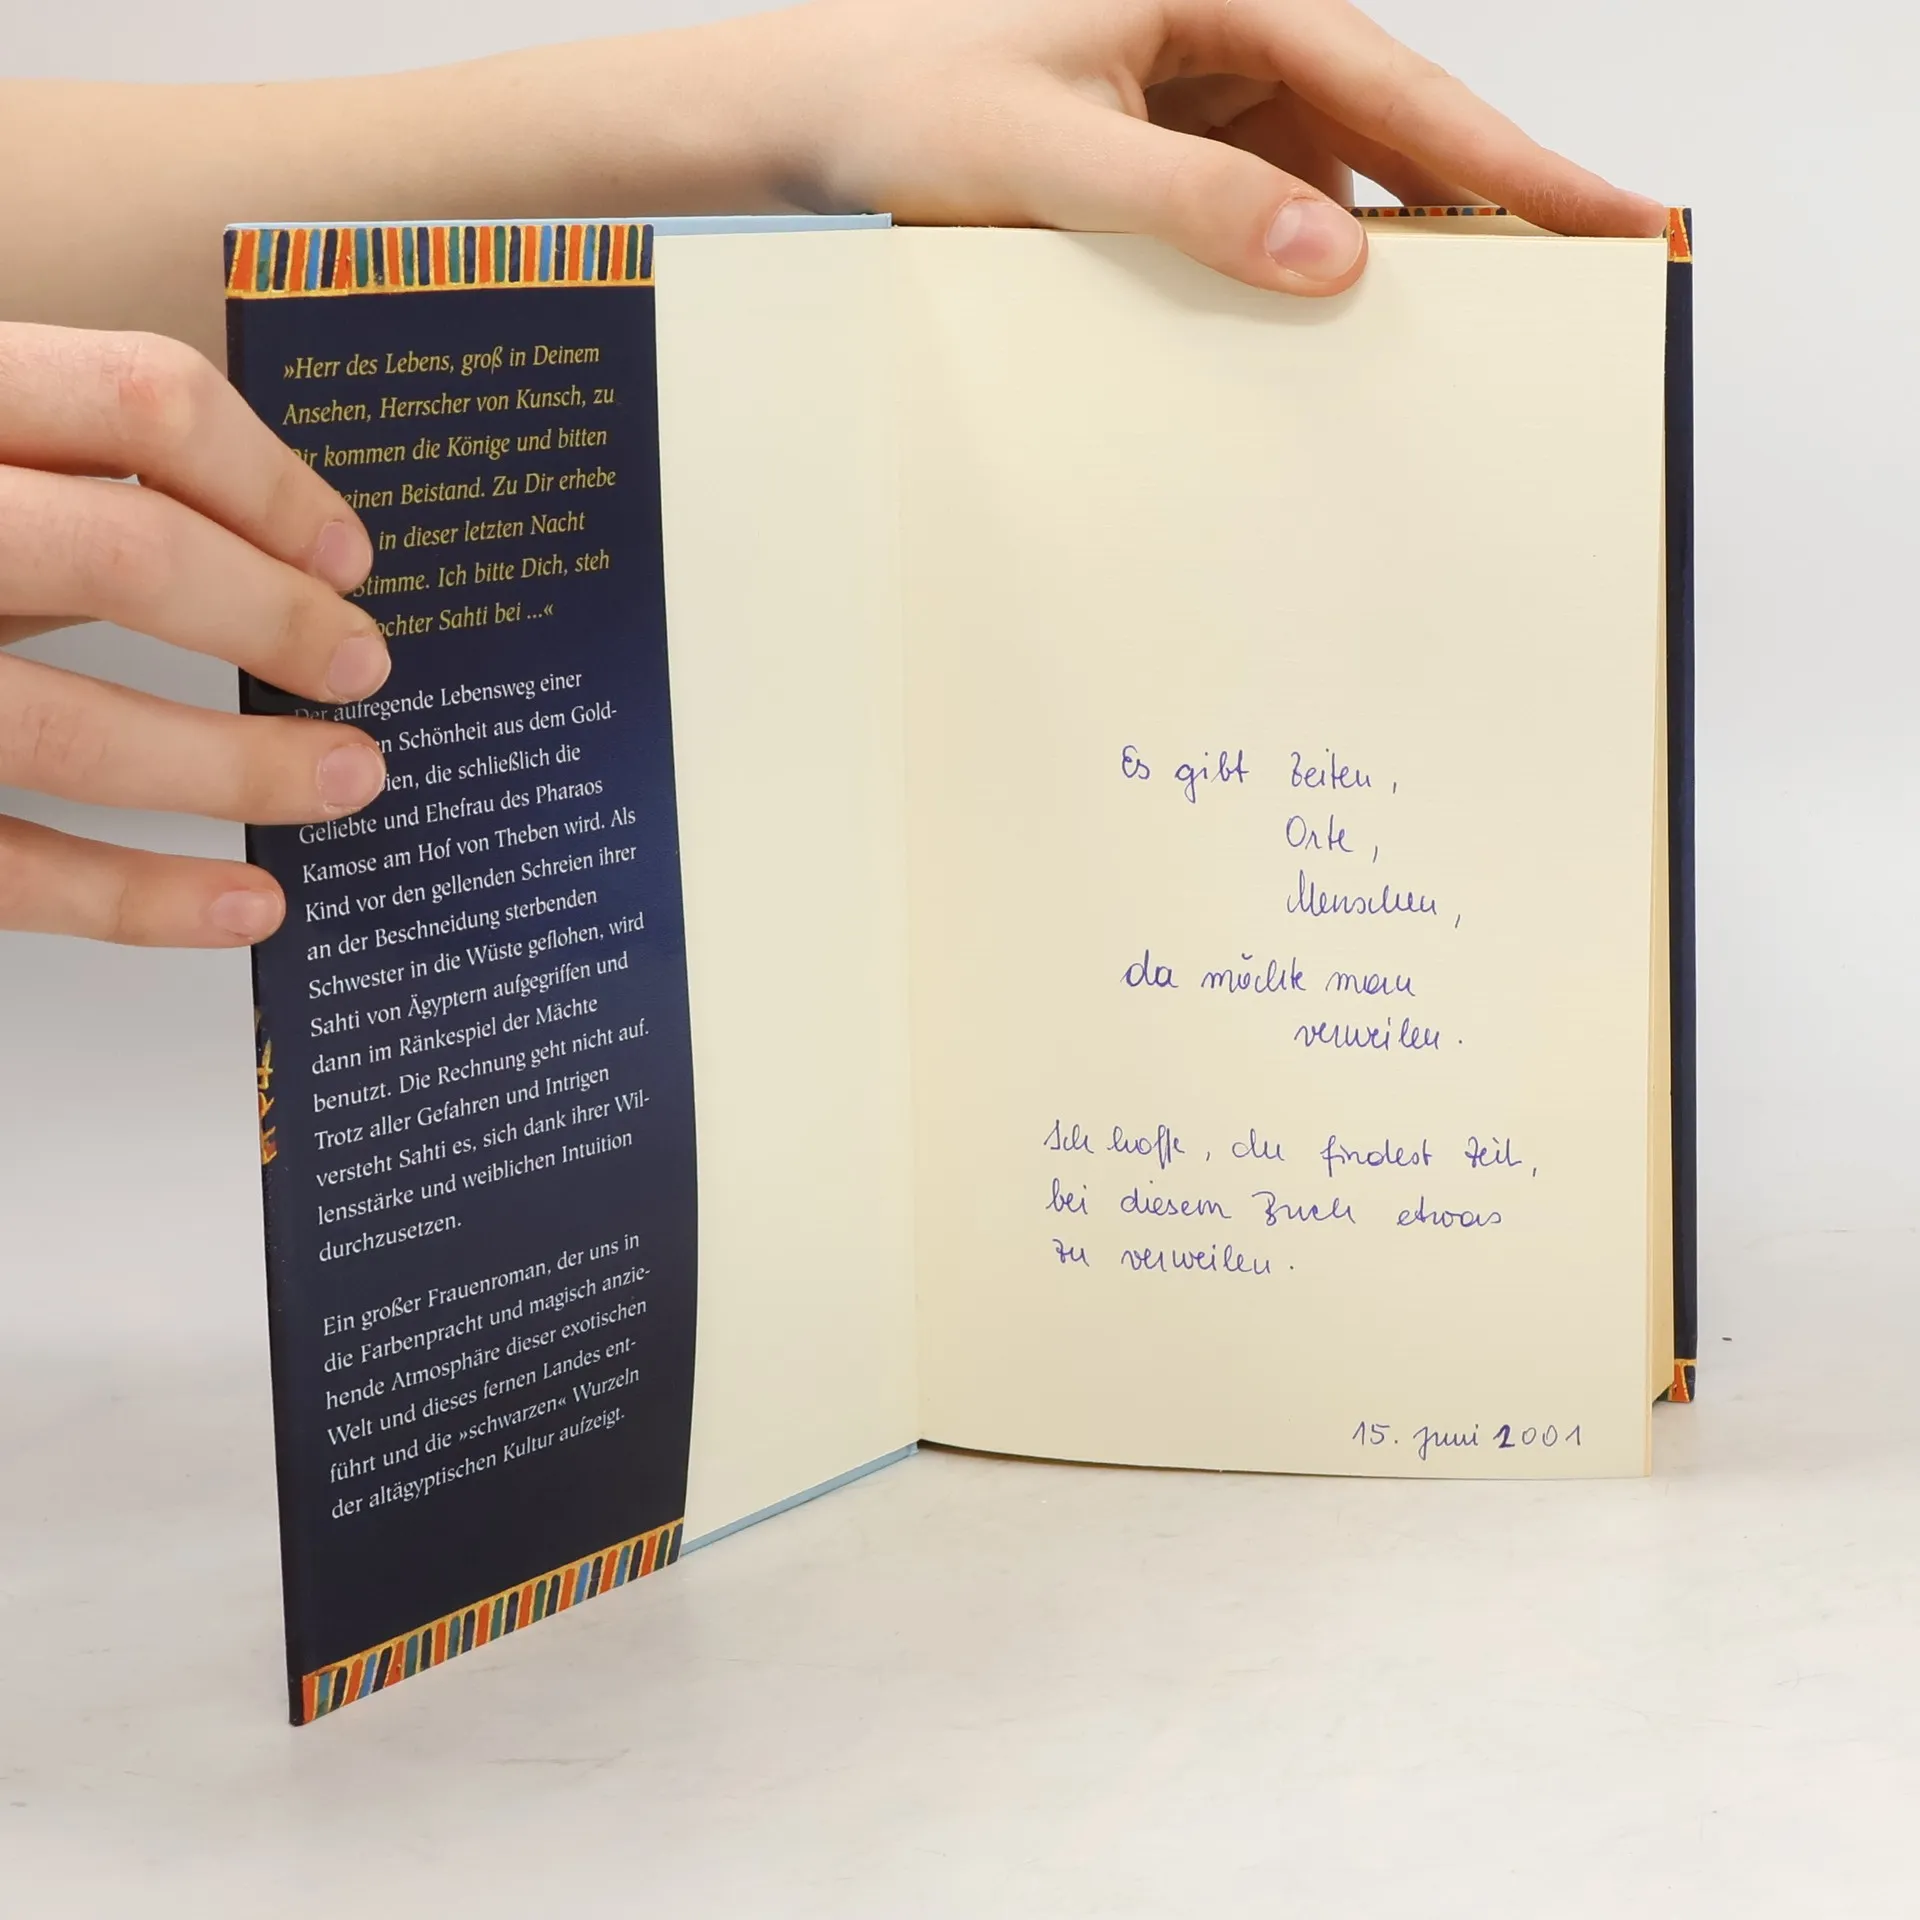 »Herr des Lebens, groß in Deinem
Ansehen, Herrscher von Kunsch, zu
kommen die Könige und bitten
Beistand. Zu Dir erhebe
in dieser letzten Nacht
Stimme. Ich bitte Dich, steh
Sahti bei ...«
Der aufregende Lebensweg einer
Schönheit aus dem Gold-
die schließlich die
Geliebte und Ehefrau des Pharaos
Kamose am Hof von Theben wird. Als
Kind vor den gellenden Schreien ihrer
an der Beschneidung sterbenden
Schwester in die Wüste geflohen, wird
Sahti von Ägyptern aufgegriffen und
dann im Ränkespiel der Mächte
benutzt. Die Rechnung geht nicht auf.
Trotz aller Gefahren und Intrigen
versteht Sahti es, sich dank ihrer Wil-
lensstärke und weiblichen Intuition
durchzusetzen.
Ein großer Frauenroman, der uns in
die Farbenpracht und magisch anzie-
hende Atmosphäre dieser exotischen
Welt und dieses fernen Landes ent-
führt und die »schwarzen« Wurzeln
der altägyptischen Kultur aufzeigt.
Es gibt Zeiten,
Orte,
Menschen,
da möchte man
verweilen.
Ich hoffe, du findest Zeit,
bei diesem Buch etwas
zu verweilen.
15. Juni 2001